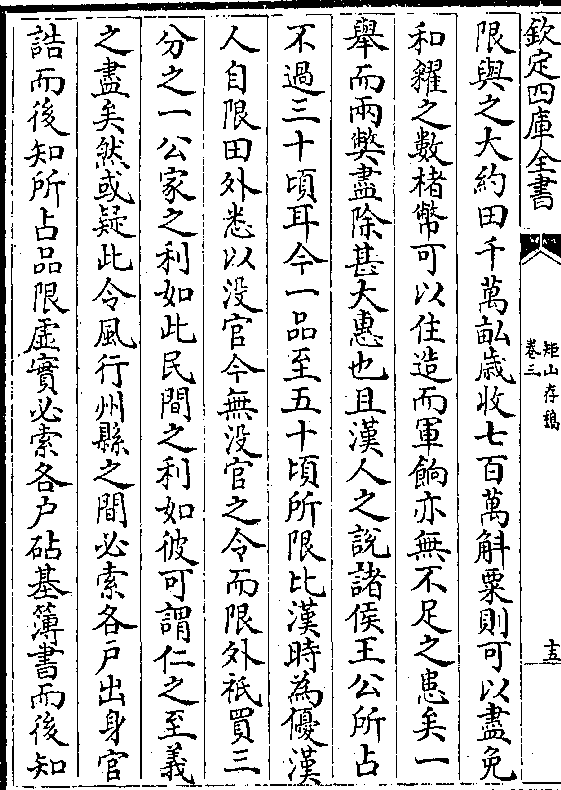 欽定四庫全書
矩山存稿
卷三
十五
限與之大約田千萬畝歲收七百萬斛粟則可以盡免
和糴之數楮幣可以住造而軍餉亦無不足之患矣一
舉而兩弊盡除甚大惠也且漢人之說諸侯王公所占
不過三十頃耳今一品至五十頃所限比漢時為優漢
人自限田外悉以没官今無没官之令而限外祇買三
分之一公家之利如此民間之利如彼可謂仁之至義
之盡矣然或疑此令風行州縣之間必索各戶出身官
誥而後知所占品限虛實必索各戶砧基簿書而後知